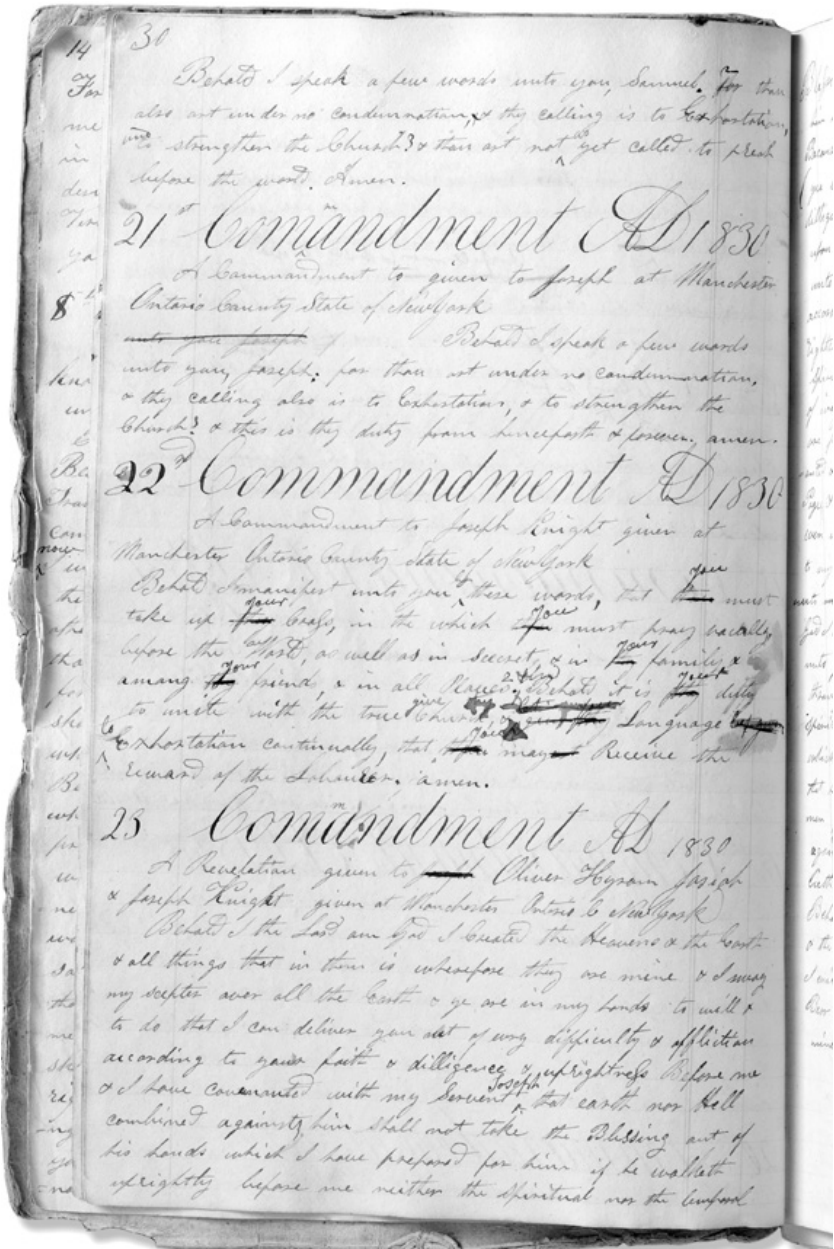 30
Behold I speak a few words unto you, Samuel. For thou
also art under no condemnation, & thy calling is to Exhortation,
and to strengthen the Church? & thou art not as yet called to preach
before the world. Amen.
21st Commandment AD 1830
A Commandment to given to Joseph at Manchester
Ontario County State of NewYork
unto you Joseph Behold I speak a few words
unto you, Joseph; for thou art under no condemnation,
& thy calling also is to Exhortation, & to strengthen the
Church? & this is thy duty from henceforth & forever. amen.
22nd Commandment AD 1830
A Commandment to Joseph Knight given at
Manchester Ontario County State of NewYork
Behold I manifest unto you by these words, that you must
take up your Cross, in the which you must pray vocally
before the World, as well as in secret, & in your family &
among your friends, & in all Places. & Behold it is your duty
to unite with the true Church, & give Language
to Exhortation continually, that you may Receive the
reward of the Labourer. amen.
23 Commandment AD 1830
A Revelation given to Joseph Oliver Hyram Josiah
& Joseph Knight given at Manchester Ontario C NewYork
Behold I the Lord am God I Created the Heavens & the Earth
& all things that in them is wherefore they are mine & I sway
my scepter over all the Earth & ye are in my hands to will &
to do that I can deliver you out of evry difficulty & affliction
according to your faith & dilligence & uprightness Before me
& I have covenanted with my Servent Joseph that earth nor Hell
combined against him shall not take the Blessing out of
his hands which I have prepared for him if he walketh
uprightly before me neither the spiritual nor the temporal
14
For
me
in
8